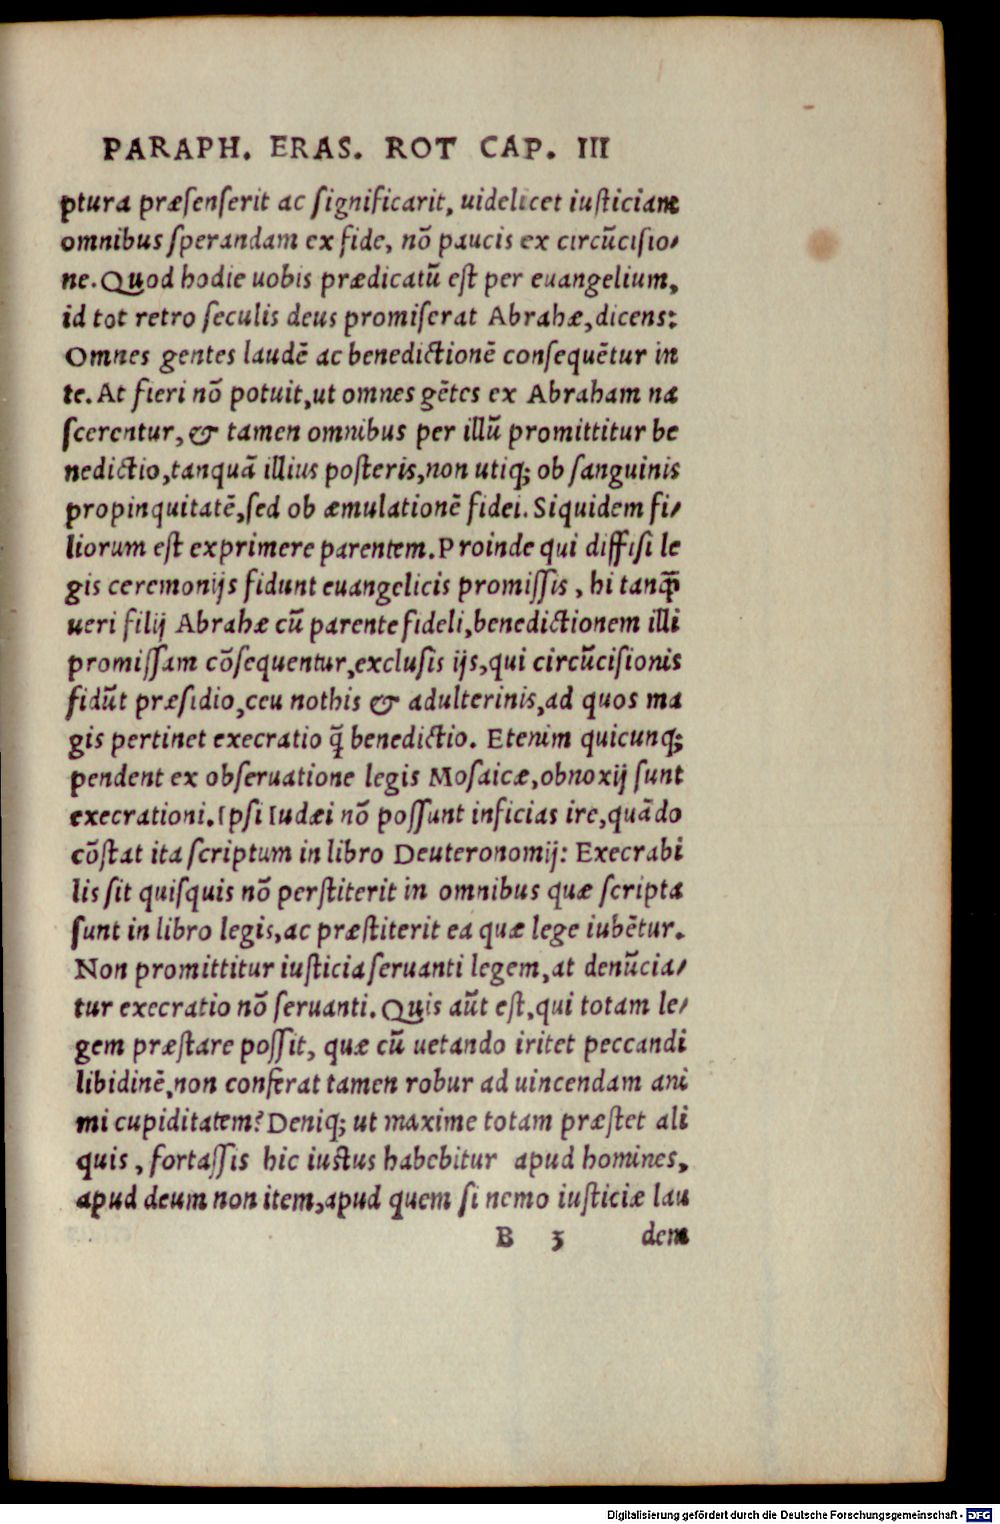 PARAPH. ERAS. ROT CAP. III
ptura præſenſerit ac ſignificarit, uidelicet iuſticiam
omnibus ſperandam ex fide, nō paucis ex circūciſio⸗
ne. Quod hodie uobis prædicatū eſt per euangelium,
id tot retro ſeculis deus promiſerat Abrahæ, dicens:
Omnes gentes laudē ac benedictionē conſequētur in
te. At fieri nō potuit, ut omnes gētes ex Abraham na
ſcerentur, & tamen omnibus per illū promittitur be
nedictio, tanquā illius poſteris, non utiq; ob ſanguinis
propinquitatē, ſed ob æmulationē fidei. Siquidem fi⸗
liorum eſt exprimere parentem. Proinde qui diffiſi le
gis ceremonijs fidunt euangelicis promiſſis, hi tanq̄
ueri filij Abrahæ cū parente fideli, benedictionem illi
promiſſam cōſequentur, excluſis ijs, qui circūciſionis
fidūt præſidio, ceu nothis & adulterinis, ad quos ma
gis pertinet execratio q̄ benedictio. Etenim quicunq;
pendent ex obſeruatione legis Moſaicæ, obnoxij ſunt
execrationi. Ipſi Iudæi nō poſſunt inficias ire, quādo
cōſtat ita ſcriptum in libro Deuteronomij: Execrabi
lis ſit quiſquis nō perſtiterit in omnibus quæ ſcripta
ſunt in libro legis, ac præſtiterit ea quæ lege iubētur.
Non promittitur iuſticia ſeruanti legem, at denūcia⸗
tur execratio nō ſeruanti. Quis aūt eſt, qui totam le⸗
gem præſtare poſſit, quæ cū uetando iritet peccandi
libidinē, non conferat tamen robur ad uincendam ani
mi cupiditatem? Deniq; ut maxime totam præſtet ali
quis, fortaſſis hic iuſtus habebitur apud homines,
apud deum non item, apud quem ſi nemo iuſticiæ lau
B 3 dem
Digitalisierung gefördert durch die Deutsche Forschungsgemeinschaft - DFG